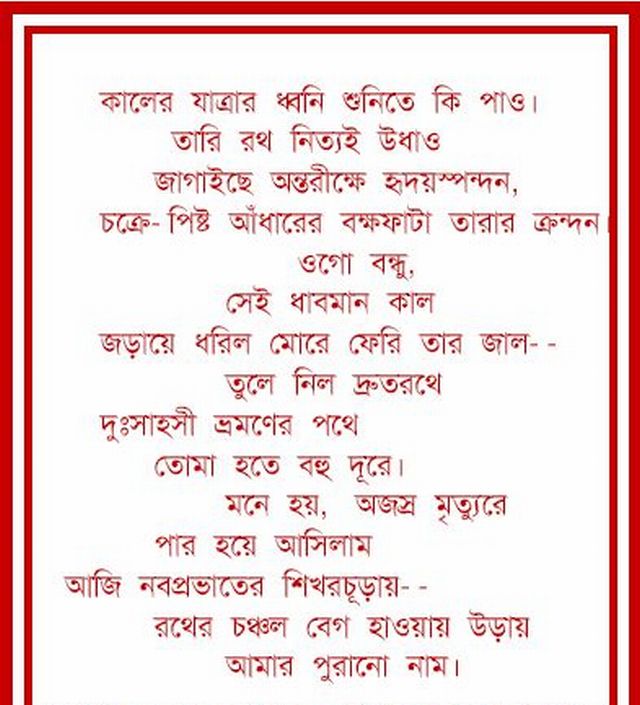 কালের যাত্রার ধ্বনি শুনিতে কি পাও।
তারি রথ নিত্যই উধাও
জাগাইছে অন্তরীক্ষে হৃদয়স্পন্দন,
চক্রে-পিষ্ট আঁধারের বক্ষফাটা তারার ক্রন্দন।
ওগো বন্ধু,
সেই ধাবমান কাল
জড়ায়ে ধরিল মোরে ফেরি তার জাল--
তুলে নিল দ্রুতরথে
দুঃসাহসী ভ্রমণের পথে
তোমা হতে বহু দূরে।
মনে হয়, অজস্র মৃত্যুরে
পার হয়ে আসিলাম
আজি নবপ্রভাতের শিখরচূড়ায়--
রথের চঞ্চল বেগ হাওয়ায় উড়ায়
আমার পুরানো নাম।